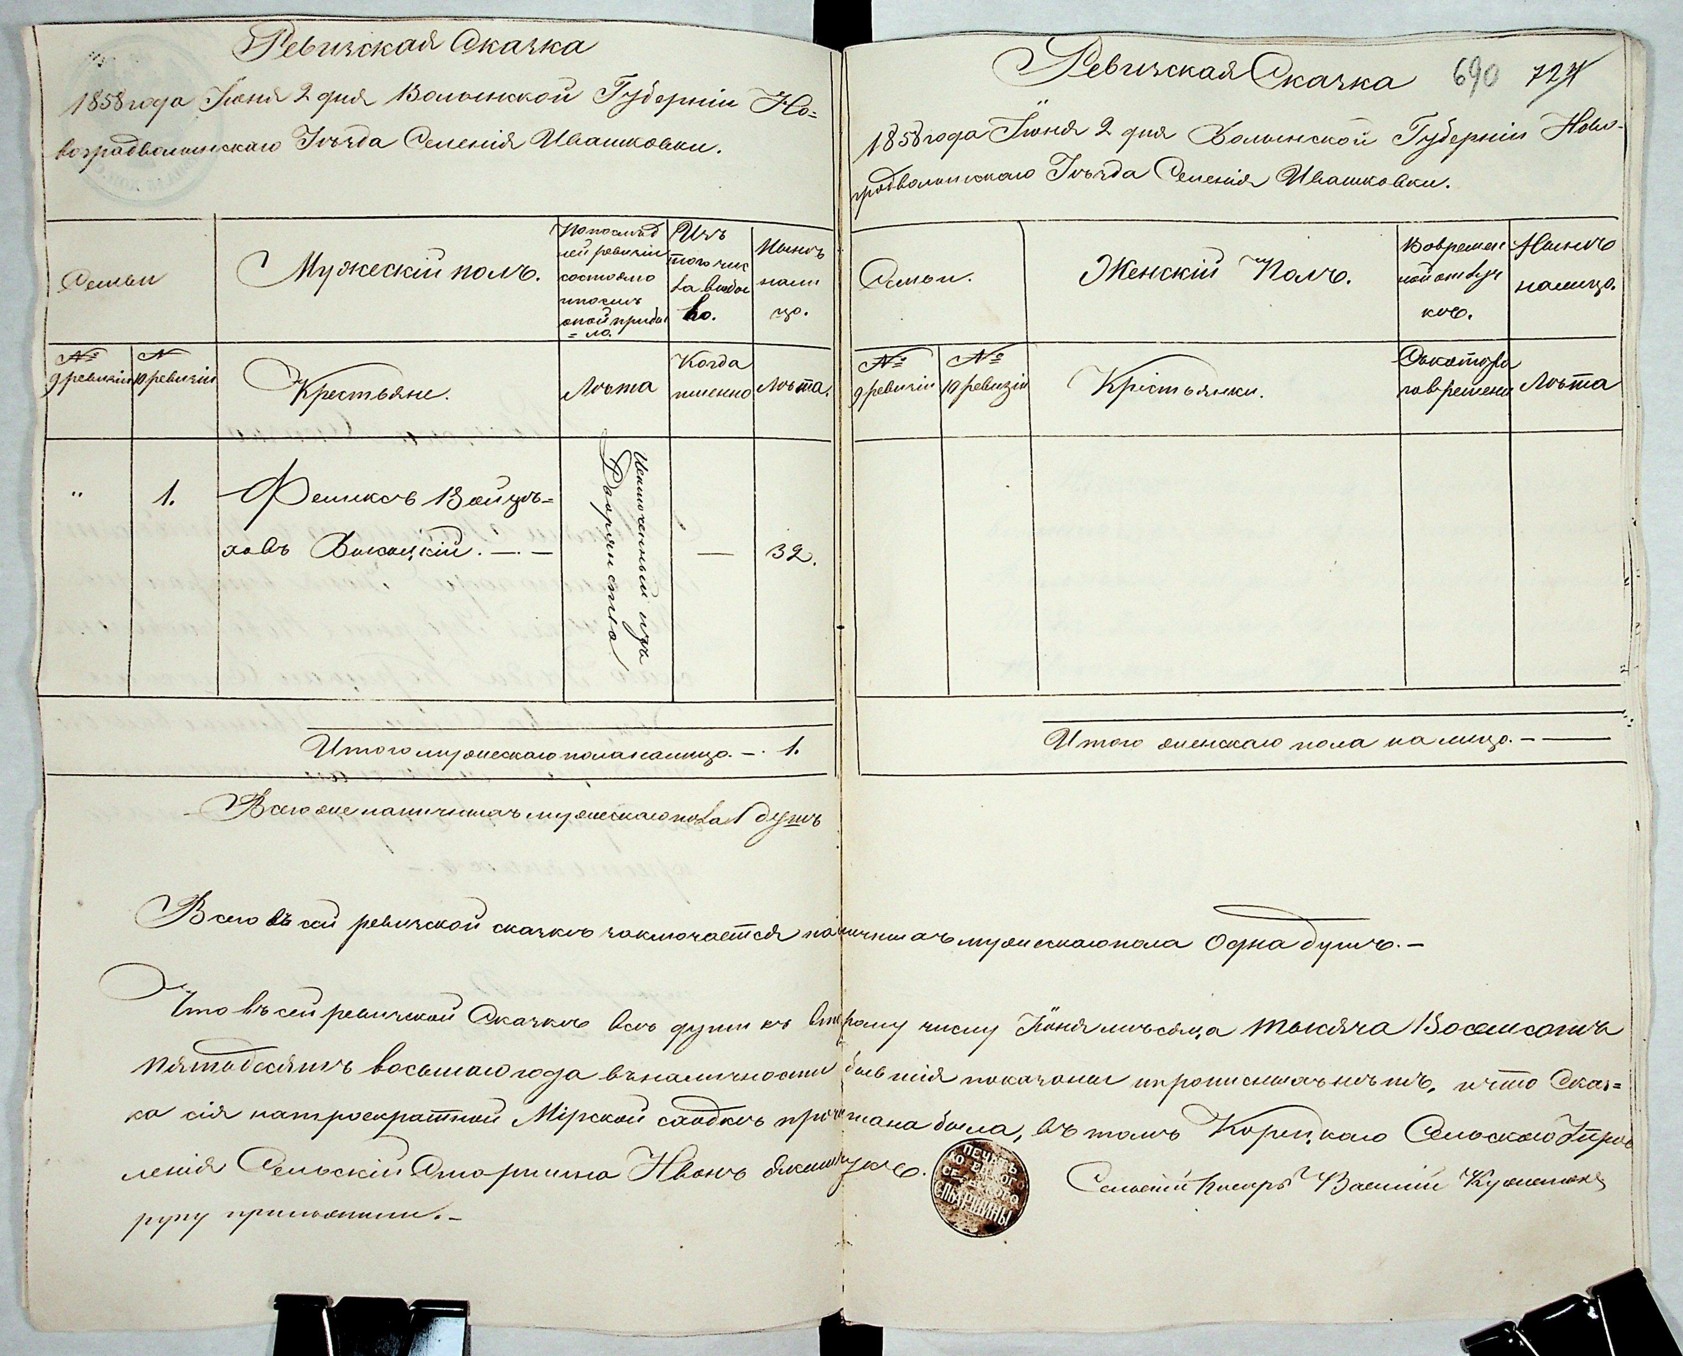 Ревизская Сказка
1858 года Июня 2 дня Волынской Губерніи Но-
воградволынскаго Уѣзда Селенія Ивашковки.
Семьи
Мужескій полъ.
По послѣд
ней ревизіи
состояло
и послѣ
оной прибы
= ло.
Изъ
того чис
ла выбы
ло.
Нынѣ
нали
цо.
№
9 ревизіи
№
10 ревизіи
Крестьяне.
Лѣта
Когда
именно
Лѣта.
"
1.
Феликсъ Войцѣ=
ховъ Высоцкій. — . —
Исключенный изъ
Дворянства
—
32.
Итого мужескаго пола налицо. — . 1.
Всего же наличныхъ мужескаго пола 1 душъ
Ревизская Сказка
690
727
1858 года Июня 2 дня Волынской Губерніи Ново-
градволынскаго Уѣзда Селенія Ивашковки.
Семьи.
Женскій Полъ.
Во времен
ной отлуч
кѣ.
Нынѣ
налицо.
№
9 ревизіи
№
10 ревизіи
Крестьянки.
Съ котора
го времени
Лѣта
Итого женскаго пола на лицо. — ——
Всего въ сей ревизской сказкѣ заключается наличныхъ мужескаго пола Одна душъ. —
Что въ сей ревизской Сказкѣ всѣ души къ второму числу Июня мѣсяца тысяча Восемсотъ
пятьдесятъ восьмаго года въ наличности бывшія показаны и прописныхъ нѣтъ, и что Сказ=
ка сія на троекратной Мірской сходкѣ прочитана была, въ томъ Корецкаго Сельскаго Упров
ленія Сельскій Старшина Иванъ
руку приложили. —
ПЕЧАТЬ
КОРЕЦКОГО
СЕЛЬСКОГО
СТАРШИНЫ
Сельскій Писарь Василій